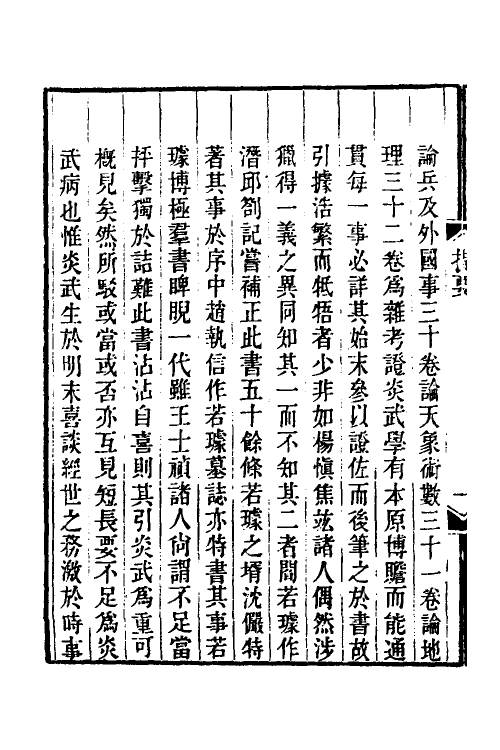 論兵及外國事三十卷論天象術數三十一卷論地
理三十二卷爲雜考證炎武學有本原博贍而能通
貫每一事必詳其始末參以證佐而後筆之於書故
引據浩繁而牴牾者少非如楊愼焦竑諸人偶然涉
獵得一義之異同知其一而不知其二者閻若璩作
潛邱劄記嘗補正此書五十餘條若璩之壻沈儼特
著其事於序中趙執信作若璩墓誌亦特書其事若
璩博極羣書睥睨一代雖王士禎諸人尙謂不足當
抨擊獨於詰難此書沾沾自喜則其引炎武爲重可
槪見矣然所駁或當或否亦互見短長要不足爲炎
武病也惟炎武生於明末喜談經世之務激於時事